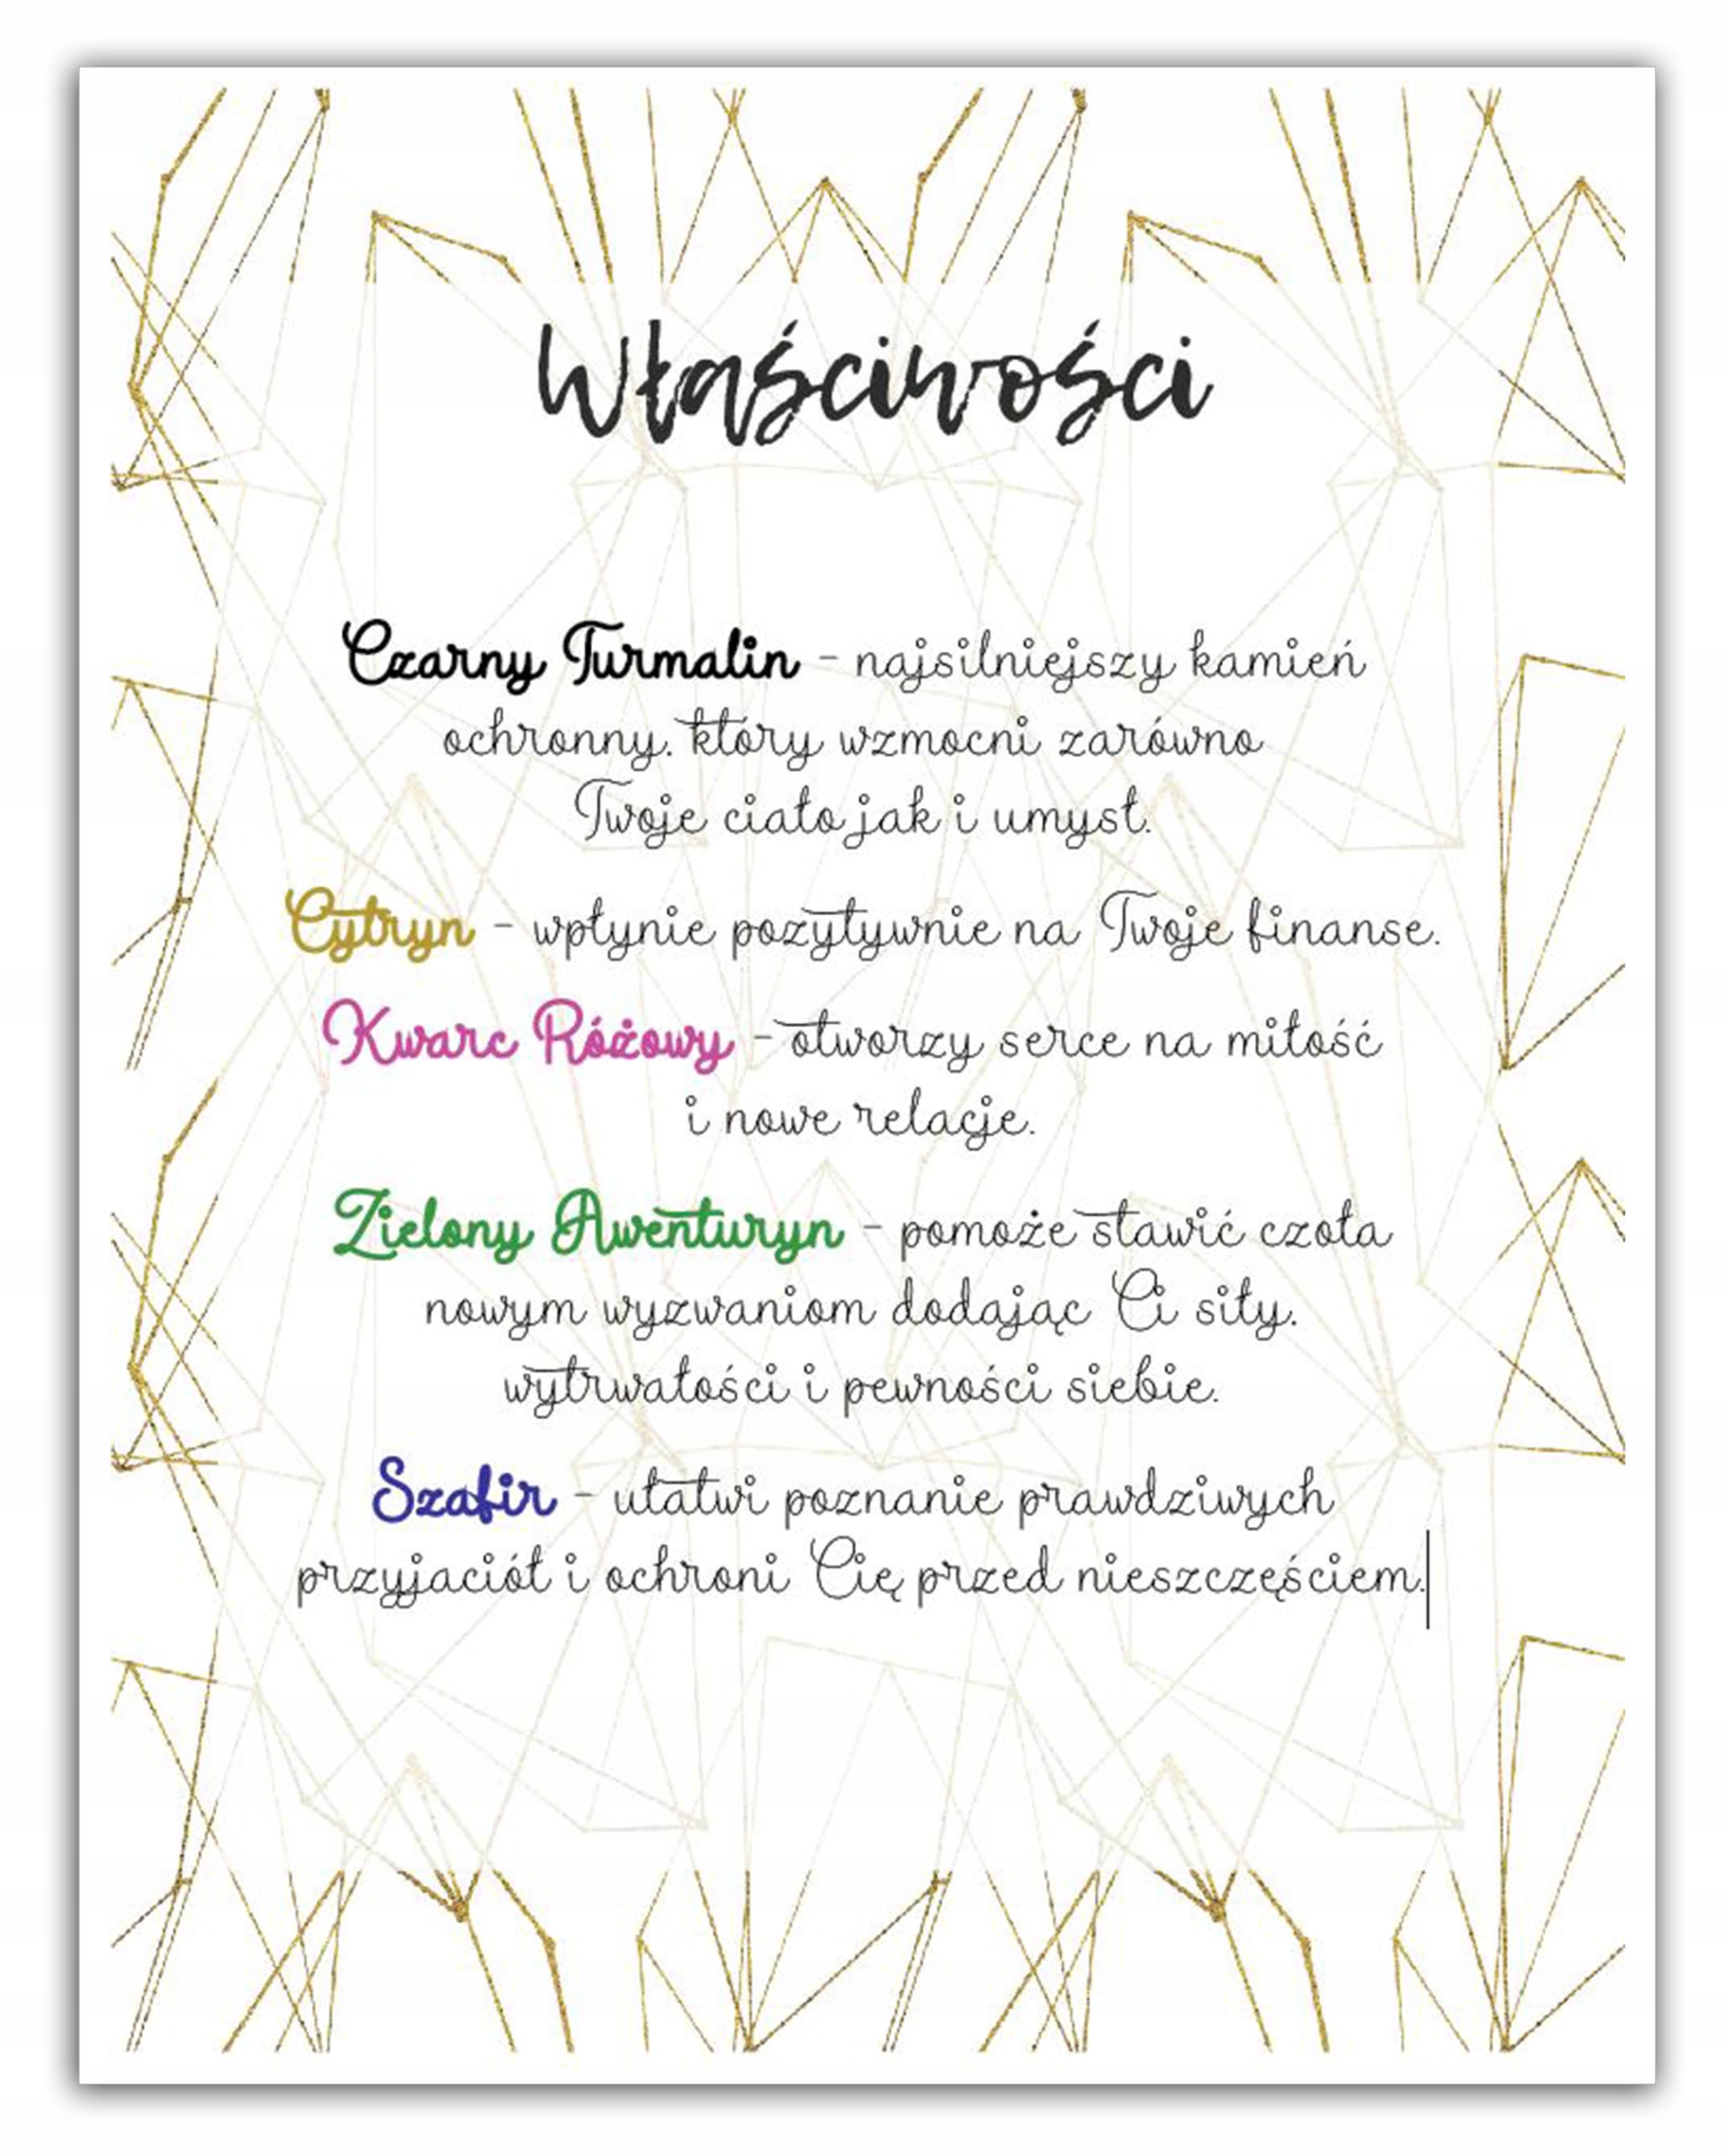 Właściwości
Czarny Turmalin - najsilniejszy kamień
ochronny, który wzmocni zarówno
Twoje ciało jak i umysł.
Cytryn - wpłynie pozytywnie na Twoje finanse.
Kwarc Różowy - otworzy serce na miłość
i nowe relacje.
Zielony Awenturyn - pomoże stawić czoła
nowym wyzwaniom dodając Ci siły,
wytrwałości i pewności siebie.
Szafir - ułatwi poznanie prawdziwych
przyjaciół i ochroni Cię przed nieszczęściem.